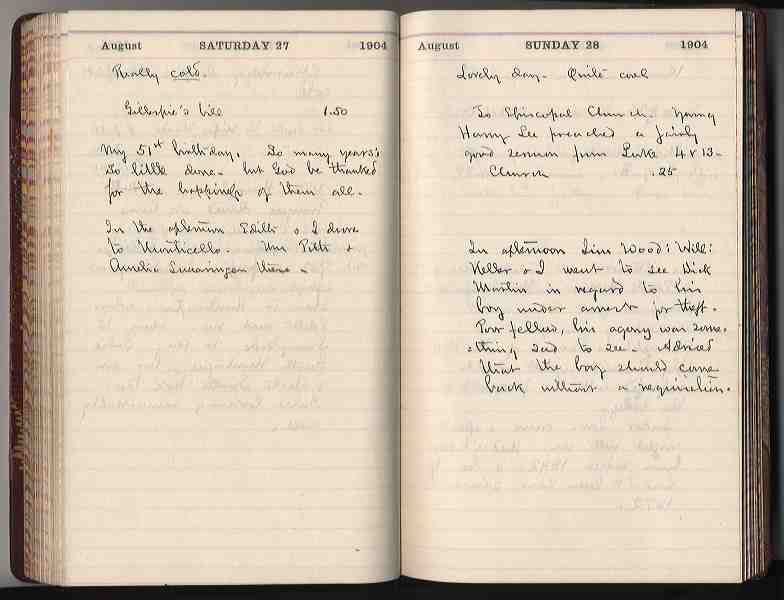 August SATURDAY 27 1904
Really cold.
Gillespie's bill 1.50
My 51st birthday. So many years
So little done - but God be thanked
for the happiness of them all.
In the afternoon Edith & I drove
to Monticello. Wm Pitts &
Amelia Swearingen there -
August SUNDAY 28 1904
Lovely day - Quite cool
To Episcopal Church. Young
Harry Lee preached a fairly
good sermon from Luke 4 v 13 -
Church .25
In afternoon Jim Wood: Will:
Keller & I went to see Dick
Martin in regard to his
boy under arrest for theft.
Poor fellow, his agony was some-
-thing sad to see - Advised
that the boy should come
back without a requisition.